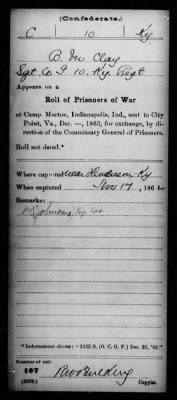 (Confederate.)
C 10 Ky
B. M. Clay
Sgt Co. I 10. Ky. Regt
Appears on a
Roll of Prisoners of War
at Camp Morton, Indianapolis, Ind., sent to City
Point, Va., Dec. —, 1863, for exchange, by di-
rection of the Commissary General of Prisoners.
Roll not dated.*
Where captured near Henderson Ky
When captured Nov 17, 186
Remarks:
Johnsons Ky. Cav.
*Indorsement shows: "1132 S. (O. C. G. P.) Dec. 21, '63."
Number of roll:
107
(639b) Copyist.